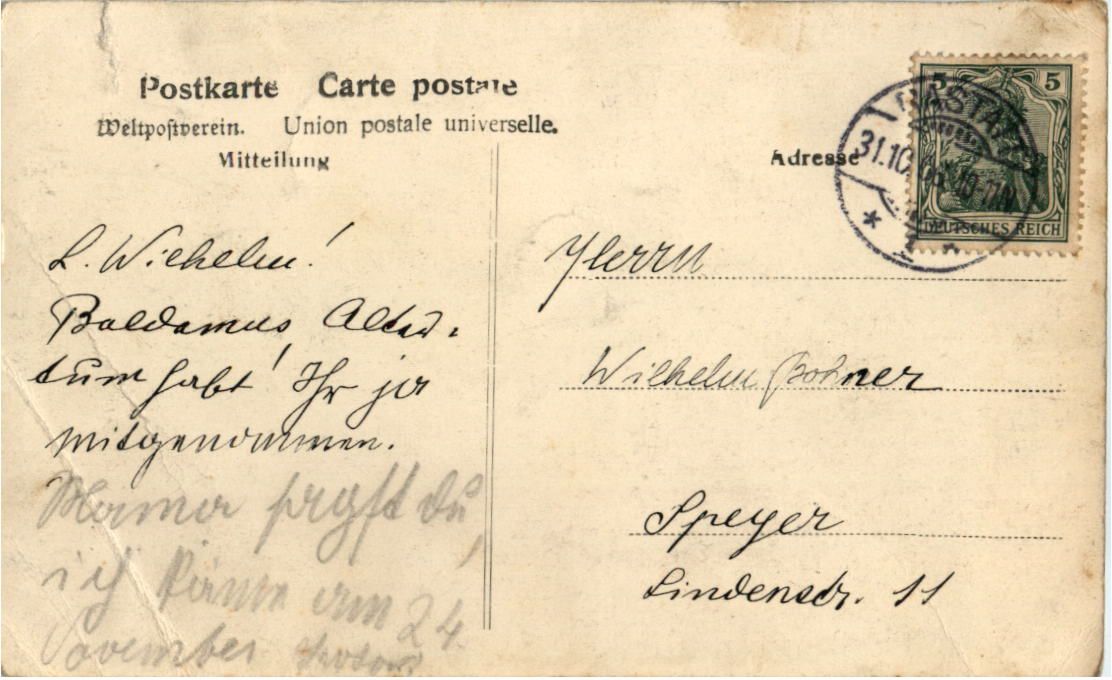 Postkarte Carte postale
Weltpostverein. Union postale universelle.
Mitteilung
Adresse
5 5
DEUTSCHES REICH
RASTATT
31.10.06 10-11V
* 1
L. Wilhelm!
Baldamus, Alter-
tum habt Ihr ja
mitgenommen.
Mama sagst du,
ich käme am 24.
November
Herrn
Wilhelm Bohner
Speyer
Lindenstr. 11